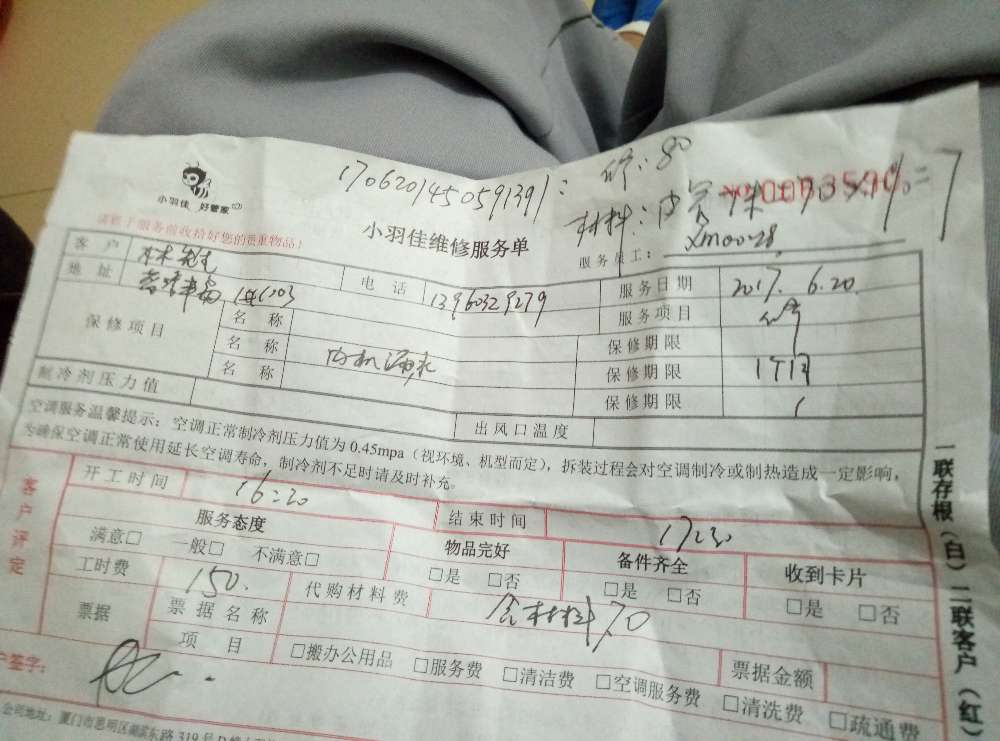 1706201450591391: 修: 80
小羽佳 好管家
小羽佳维修服务单
材料:
请您于服务前收拾好您的贵重物品!
服务员工: Xm0028
客户 林先生 电话 13960329279 服务日期 2017. 6.20.
地址 1603 服务项目
保修项目 名称 保修期限
名称 内机漏水 保修期限 1个月
名称 保修期限
制冷剂压力值 出风口温度
空调服务温馨提示:空调正常制冷剂压力值为0.45mpa(视环境、机型而定),拆装过程会对空调制冷或制热造成一定影响,
为确保空调正常使用延长空调寿命,制冷剂不足时请及时补充。
客户评定
开工时间 16:20 结束时间 17:20
服务态度 物品完好 备件齐全 收到卡片
满意□ 一般□ 不满意□ □是 □否 □是 □否 □是 □否
工时费 150. 代购材料费 含材料70
票据 票据名称
项目 □搬办公用品 □服务费 □清洁费 □空调服务费 □清洗费 □疏通费
票据金额
户签字:
公司地址:厦门市思明区湖滨东路319号D
一联存根(白)二联客户(红)